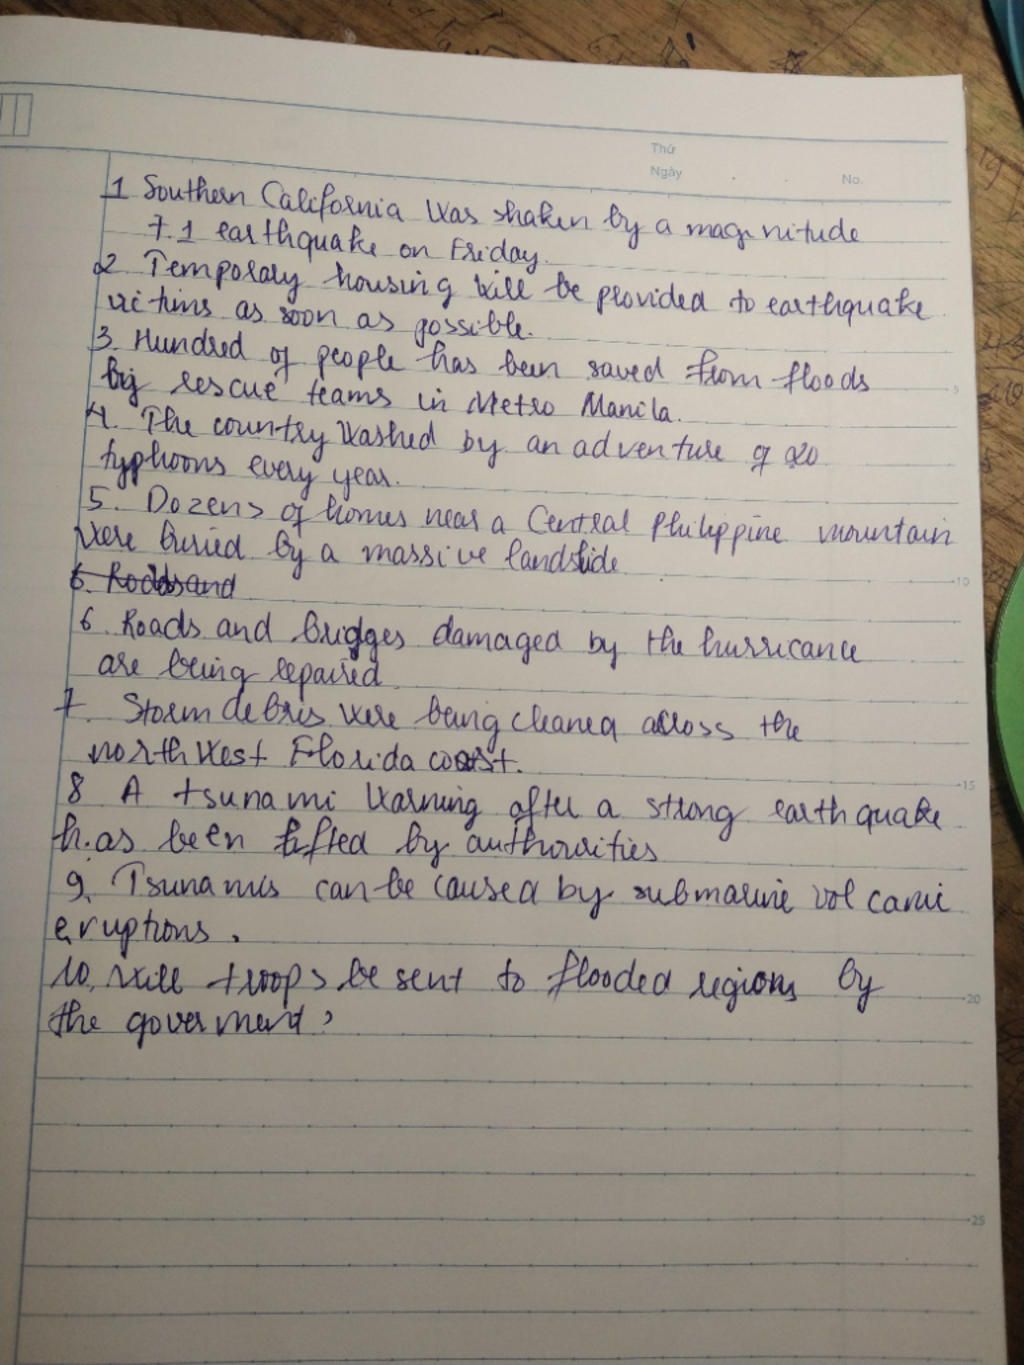 Thứ
Ngày
No.
1 Southern California was shaken by a magnitude
7.1 earthquake on Friday.
2. Temporary housing will be provided to earthquake
victims as soon as possible.
3. Hundred of people has been saved from floods
by rescue teams in Metro Manila.
4. The country washed by an adventure of 20
typhoons every year.
5. Dozens of homes near a Central Philippine mountain
were buried by a massive landslide
6. Roads and bridges damaged by the hurricane
are being repaired
7. Storm debris were being cleaned across the
northwest Florida coast.
8 A tsunami warning after a strong earthquake
has been lifted by authorities
9. Tsunamis can be caused by submarine volcanic
eruptions.
10. Will troops be sent to flooded regions by
the goverment?
5
10
15
20
25